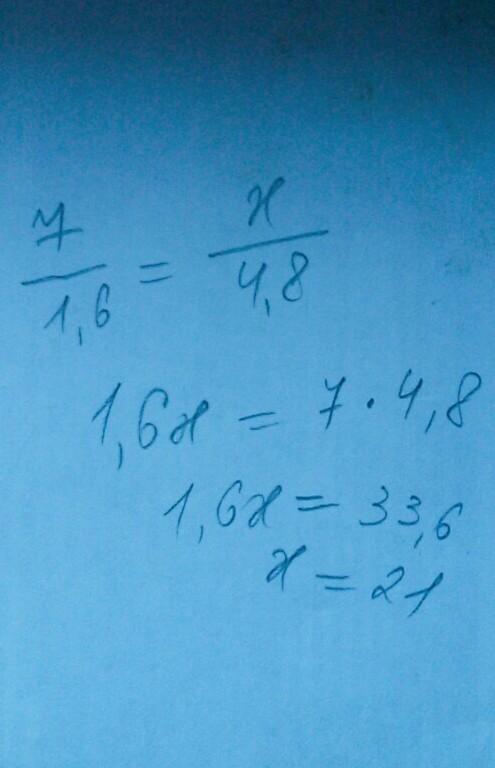 7/1,6 = x/4,8
1,6x = 7 · 4,8
1,6x = 33,6
x = 21